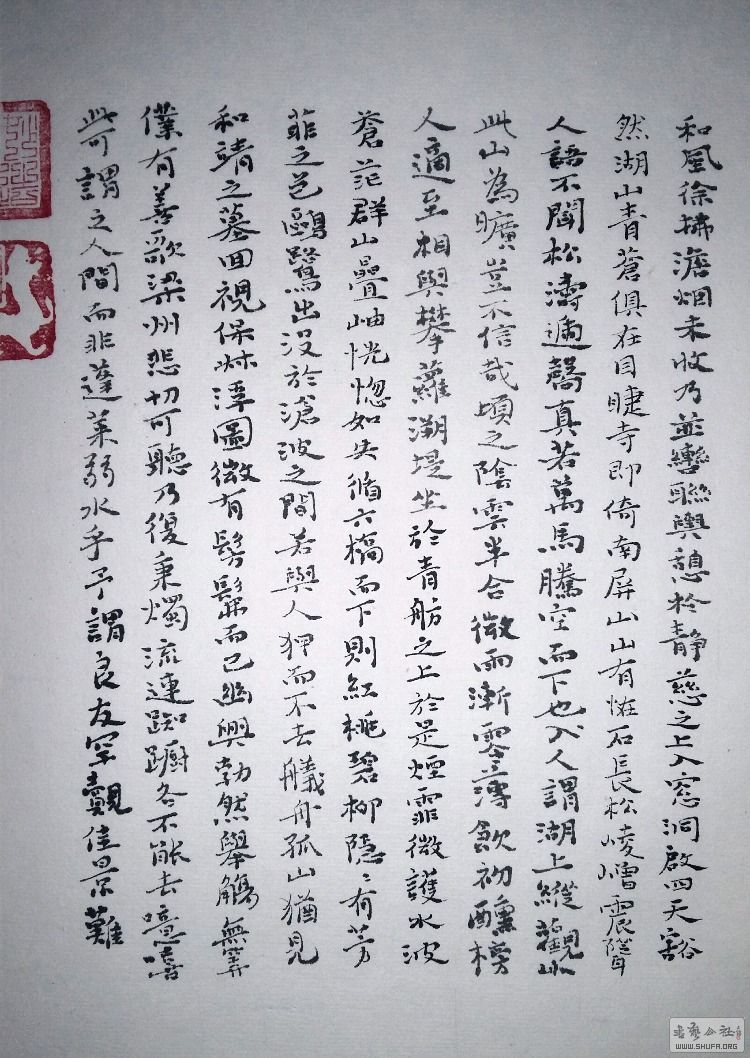 和風徐拂澹烟未收乃並轡聯輿憩於静慈之上入窓洞啟四天豁
然湖山青蒼俱在目睫寺即倚南屏山山有恠石長松崚嶒震聳
人語不聞松濤遞響真若萬馬騰空而下也人謂湖上縱觀
此山為曠豈不信哉頃之陰雲半合微雨漸零薄飲初醺榜
人適至相與攀蘿溯堤坐於青舫之上於是煙霏微護水波
蒼茫群山疊岫恍惚如失循六橋而下則紅桃碧柳隱〻有芳
菲之色鷗鷺出没於滄波之間若與人狎而不去艤舟孤山猶見
和靖之墓回視保叔浮圖微有髣髴而已幽興勃然舉觴無筭
僕有善歌梁州悲切可聽乃復秉燭流連踟躕各不能去噫嘻
此可謂之人間而非蓬萊弱水乎予謂良友罕覯佳景難
书艺公社
WWW.SHUFA.ORG